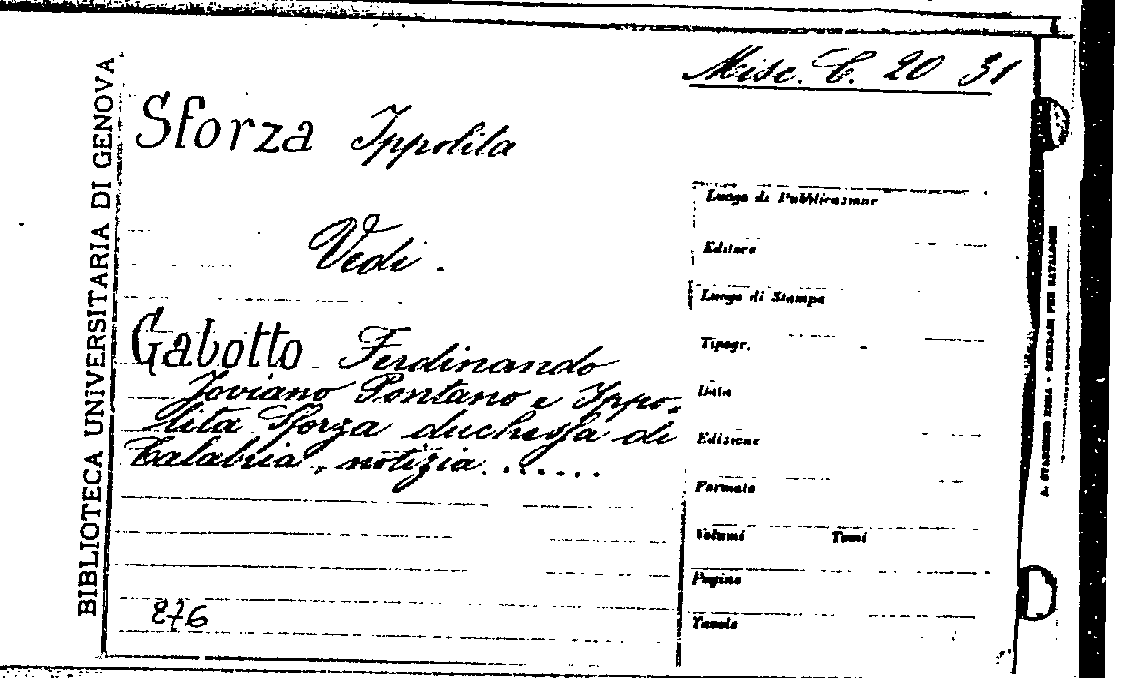 Misc. C. 20 31
BIBLIOTECA UNIVERSITARIA DI GENOVA
Sforza Ippolita
Vedi.
Gabotto Ferdinando
Joviano Pontano e Ippo-
lita Sforza duchessa di
Calabria, notizia.......
276
Luogo di Pubblicazione
Editore
Luogo di Stampa
Tipogr.
Data
Edizione
Formato
Volumi Tomi
Pagine
Tavole